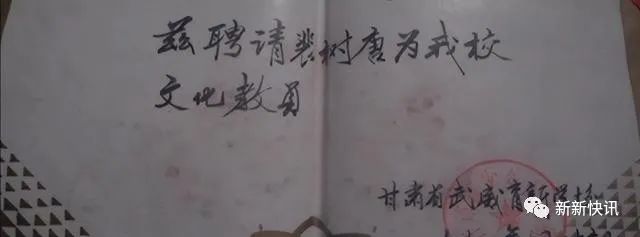 兹聘请裴树唐为我校
文化教员
甘肃省武威育新学校
新新快讯